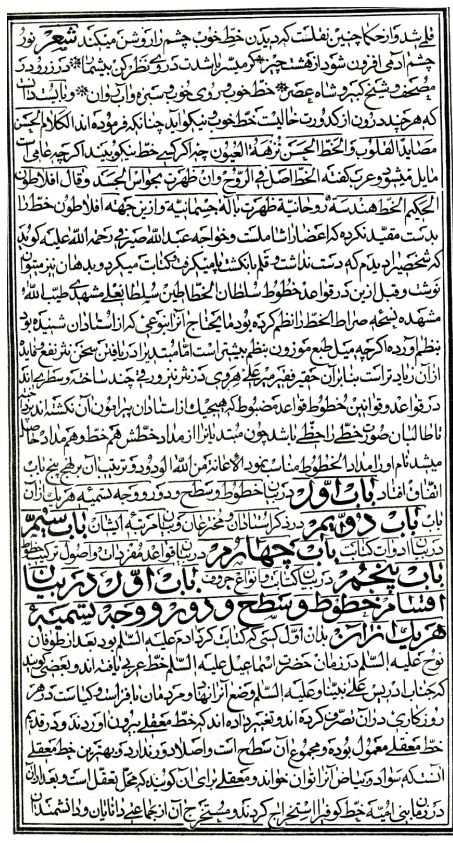 قلمی شد و از حکما چنین نقلست که دیدن خط خوب چشم را روشن میکند شعر نور
چشم آدمی افزون شود از هشت چیز گر میسر باشدت در وی نظر کن بیشما در زر و در
مصحف و شیخ کبیر و شاه عصر خط خوب و روی خوب و سبزه و آب روان و باید دانست
که هر چند درون از کدورت خالیست خط خوب نیکو آید چنانکه فرموده اند الکلام الحسن
مصاید القلوب و الخط الحسن نزهة العیون چه اگر کسی خط نیکو بیند اگر چه عامی است
مایل میشود و عرب گفته الخط اصل فی الروح و ان ظهرت بحواس الجسد و قال افلاطون
الحکیم الخط هندسة روحانیة ظهرت بآلة جسمانیة و از این جهة افلاطون خط را
بدست مقید نکرده که اعضا را شاملست و خواجه عبد الله صیرفی رحمة الله علیه گوید
که شخصی را دیدم که دست نداشت و قلم بانگشت پا میگرفت و کتابت میکرد و بدهان نیز میتوان
نوشت و قبل ازین در قواعد خطوط سلطان الخطاطین سلطانعلی مشهدی طیب الله
مشهده نسخه صراط الخط را نظم کرده بود ما یحتاج آنرا بنوعی که از استادان شنیده بود
بنظم آورده اگر چه میل طبع موزون بنظم بیشتر است اما مبتدی را دریافتن سخن نثر نفع نماید
از آن زیادتر است بنا بر آن حقیر فقیر میر علی هروی در نثر نیز ورقی چند ساخته و سطری چند
در قواعد و قوانین خطوط قواعد مضبوط که هیچیک از استادان پیرامون آن نگشته اند پرداخته
تا طالبان صورت خط را حظی باشد چون مبتدیانرا از مداد خطش هم خط و هم مداد حاصل
میشد نام او را مداد الخطوط مناسب نمود الاغاثة من الله الودود و ترتیب آن بر نهج پنج باب
اتفاق افتاد باب اول در بیان خطوط و سطح و دور و وجه تسمیه هر یک از آن
باب دویم در ذکر استادان و مخترعان و بیان مرتبه ایشان باب سیم
در بیان ادوات کتابت باب چهارم در بیان قواعد مفردات و اصول ترکیب خطوط
باب پنجم در بیان کتابت و انواع حروف باب اول در بیان
اقسام خطوط و سطح و دور و وجه تسمیه
هر یک از آن بدان اول کسی که کتابت کرد آدم علیه السلام بود بعد از طوفان
نوح علیه السلام در زمان حضرت اسماعیل علیه السلام خط عربی یافته اند و بعضی گویند
که جناب ادریس علی نبینا و علیه السلام وضع آنرا نهاد و مردمان با فراست و کیاست در هر
روزگاری در آن تصرف کرده اند و تغییر داده اند که خط معقلی بیرون آوردند و در قدیم
خط معقلی معمول بوده و مجموع آن سطح است و اصلا دور ندارد و بهترین خط معقلی
آنست که سواد و بیاض آنرا توان خواند و معقلی برای آن گویند که محل تعقل است و بعد از آن
در زمان بنی امیه خط کوفی را استخراج کردند و مستخرج آن از جماعتی دانایان و دانشمندان